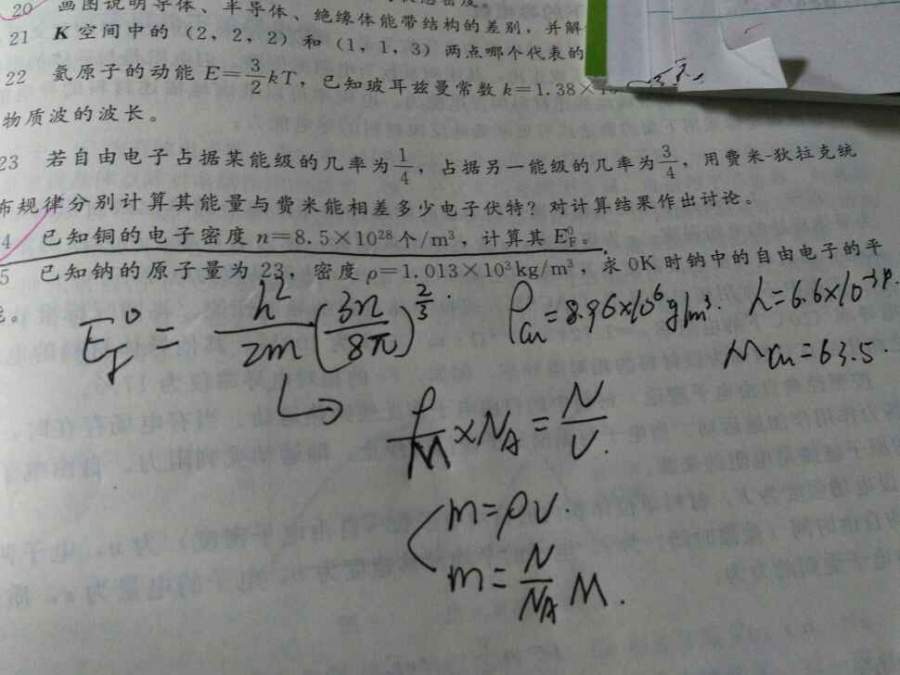 20 画图说明导体、半导体、绝缘体能带结构的差别，并解
21 K空间中的（2，2，2）和（1，1，3）两点哪个代表的
22 氦原子的动能E=3/2kT，已知玻耳兹曼常数k=1.38×
物质波的波长。
23 若自由电子占据某能级的几率为1/4，占据另一能级的几率为3/4，用费米-狄拉克统
布规律分别计算其能量与费米能相差多少电子伏特？对计算结果作出讨论。
4 已知铜的电子密度n=8.5×10²⁸个/m³，计算其E⁰F。
5 已知钠的原子量为23，密度ρ=1.013×10³kg/m³，求0K时钠中的自由电子的平
E_f⁰=h²/2m(3n/8π)^2/3.
ρCu=8.96×10⁶g/m³. h=6.6×10⁻³⁴.
MCu=63.5.
ρ/M×N_A=N/V.
m=ρV.
m=N/N_A M.